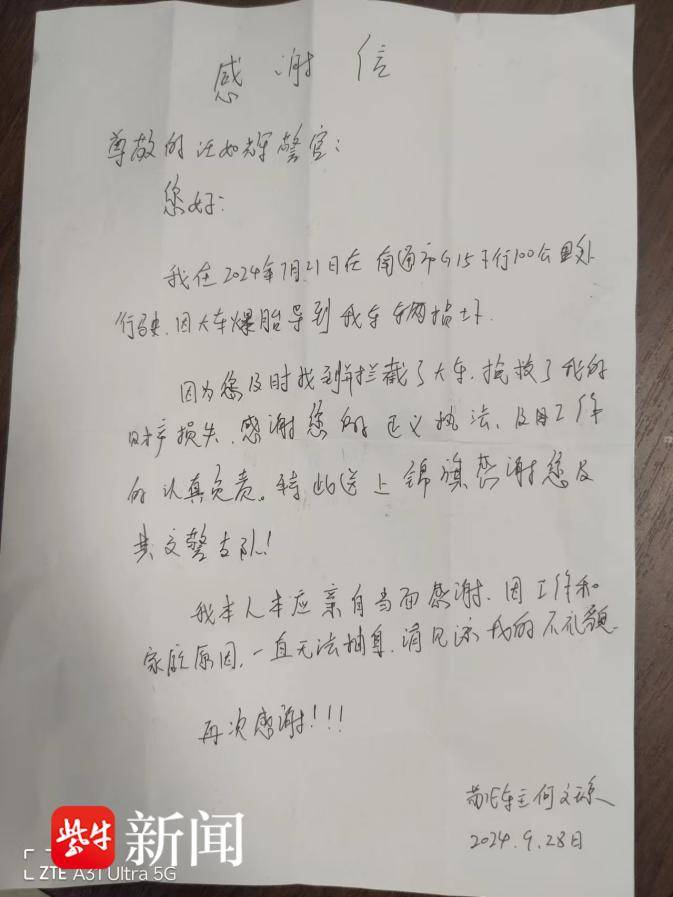 感谢信
尊敬的汪如辉警官:
您好:
我在2024年7月21日在南通市G15下行100公里处
行驶.因大车爆胎导到我车辆损坏.
因为您及时找到并拦截了大车.抢救了我的
财产损失.感谢您的正义执法、及对工作
的认真负责。特此送上锦旗感谢您及
其交警支队!
我本人本应亲自当面感谢.因工作和
家庭原因.一直无法抽身.请见谅我的不礼貌.
再次感谢!!!
车主何文
2024.9.28日
紫牛新闻
ZTE A31 Ultra 5G